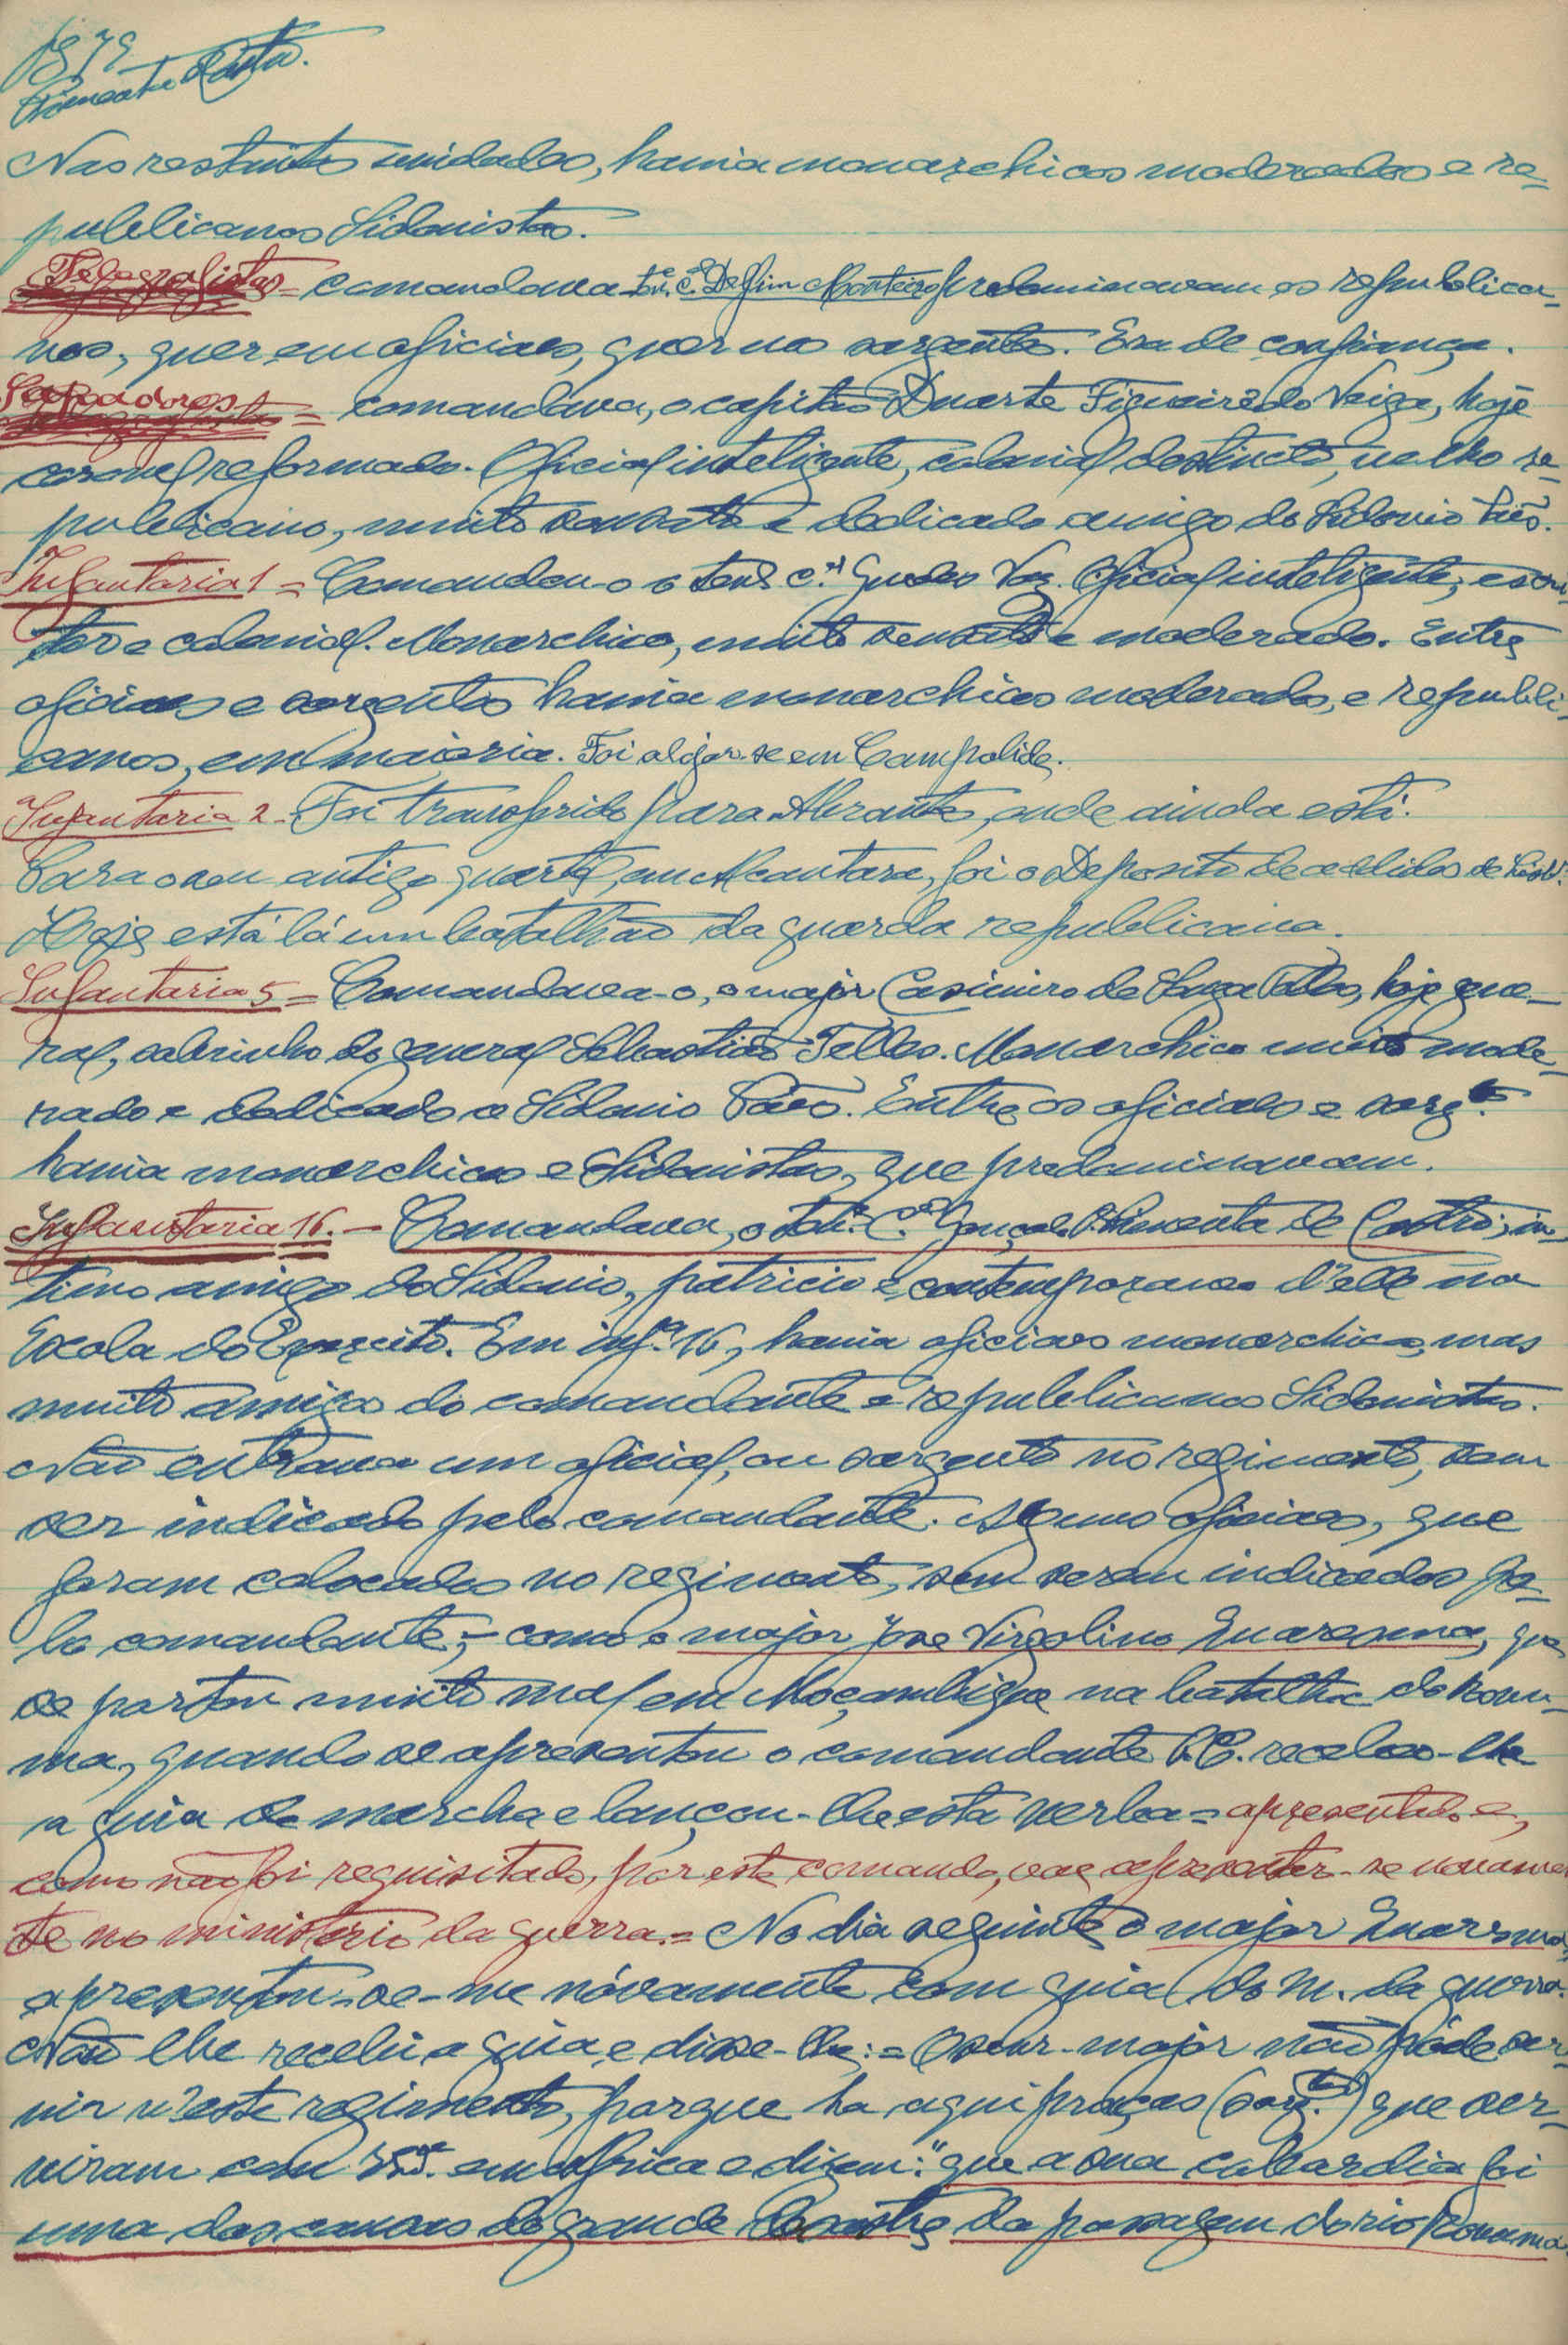 1879
Nas restantes unidades, havia monarchicos moderados e re-
publicanos Sidonistas.
Telegrafistas = comandava ten. c.el Delfim Monteiro predominavam os republica-
nos, quer em oficiaes, quer nos sargentos. Era de confiança.
Sapadores = comandava, o capitão Duarte Figueirêdo Veiga, hoje
coronel reformado. Oficial inteligente, colonial destincto, velho re-
publicano, muito sensato e dedicado amigo do Sidonio Paes.
Infantaria 1 = Comandou-o o ten. c.el Guedes Vaz. Oficial inteligente, escri-
tor e colonial. Monarchico, muito sensato e moderado. Entre
oficiaes e sargentos havia monarchicos moderados, e republi-
canos, em maioria. Foi alojar-se em Campolide.
Infantaria 2 - Foi transferido para Abrantes, onde ainda está.
Para o seu antigo quartel, em Alcantara, foi o Deposito de addidos de Lisb.ª
Hoje está lá um batalhão da guarda republicana.
Infantaria 5 = Comandava-o, o major Casimiro de Sousa Telles, hoje gene-
ral, sobrinho do general Sebastião Telles. Monarchico muito mode-
rado e dedicado a Sidonio Páes. Entre os oficiaes e sarg.tos
havia monarchicos e Sidonistas, que predominavam.
Infantaria 16. - Comandava, o ten. C.el Gonçalo Pimenta de Castro, in-
timo amigo do Sidonio, patricio e contemporaneo d'elle na
Escola do Exercito. Em inf.ª 16, havia oficiaes monarchicos, mas
muito amigos do comandante e republicanos Sidonistas.
Não entrava um oficial, ou sargento no regimento, sem
ser indicado pelo comandante. Alguns oficiaes, que
foram colocados no regimento, sem serem indicados pe-
lo comandante, - como o major José Virgolino Quaresma, que
se portou muito mal em Moçambique na batalha do Rovu-
ma, quando se apresentou o comandante P.C. recebeu-lhe
a guia de marcha e lançou-lhe esta verba = apresentado e,
como não foi requisitado, por este comando, vae apresentar-se novamen
te no ministerio da guerra. = No dia seguinte o major Quaresma,
apresentou-se-me nóvamente com guia do M. da guerra.
Não lhe recebi a guia, e disse-lhe: = O snr. major não póde ser-
vir n'este regimento, porque ha aqui praças (sarg.tos) que ser-
viram com V. em Africa e dizem: "que a sua cobardia foi
uma das causas do grande desastre da passagem do rio Rovuma.